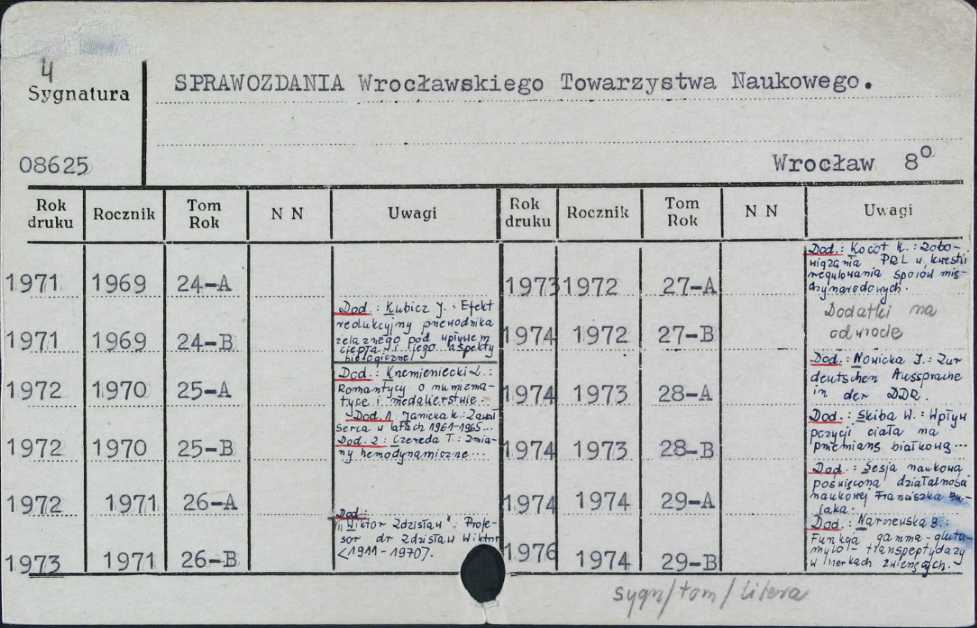 4
Sygnatura
SPRAWOZDANIA Wrocławskiego Towarzystwa Naukowego.
08625
Wrocław 8°
Rok druku Rocznik Tom Rok N N Uwagi Rok druku Rocznik Tom Rok N N Uwagi
1971 1969 24-A
1971 1969 24-B
Dod.: Kubicz J.. Efekt
redukcyjny przewodnika
żelaznego pod wpływem
ciepła i jego aspekty
biologiczne
1972 1970 25-A
Dod.: Kremieniecki L.:
Romantycy o numizma-
tyce i medalierstwie.
1972 1970 25-B
Dod. 1 Janicka K.: Zawał
serca w latach 1961-1965...
Dod. 2: Czereda T.: Zmia-
ny hemodynamiczne...
1972 1971 26-A
1973 1971 26-B
Dod.:
"Wiktor Zdzisław": Profe-
sor dr Zdzisław Wiktor
<1911-1970>.
1973 1972 27-A
Dod.: Kocot K.: Zobo-
wiązania PRL w kwestii
regulowania sporów mię-
dzynarodowych.
1974 1972 27-B
Dodatki na
odwrocie
1974 1973 28-A
Dod.: Nowicka J.: Zur
deutschen Aussprache
in der DDR.
1974 1973 28-B
Dod.: Skiba W.: Wpływ
pozycji ciała na
przemianę białkową...
1974 1974 29-A
Dod.: Sesja naukowa
poświęcona działalności
naukowej Franciszka Bu-
jaka.
1976 1974 29-B
Dod.: B.:
Funkcja gamma-gluta-
mylo-transpeptydazy
w nerkach zwierzęcych.
sygn/tom/litera